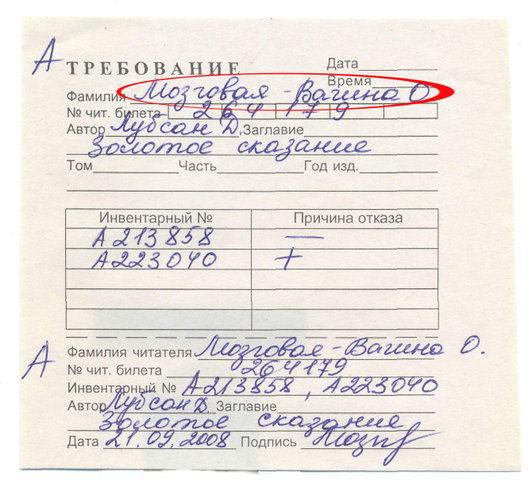 А
ТРЕБОВАНИЕ Дата
Время
Фамилия Мозговая - Вагина О.
№ чит. билета 264179
Автор Лубсан Д. Заглавие
Золотое сказание
Том Часть Год изд.
Инвентарный № Причина отказа
А213858 —
А223040 +
А
Фамилия читателя Мозговая - Вагина О.
№ чит. билета 264179
Инвентарный № А213858, А223040
Автор Лубсан Д. Заглавие
Золотое сказание
Дата 21.09.2008 Подпись